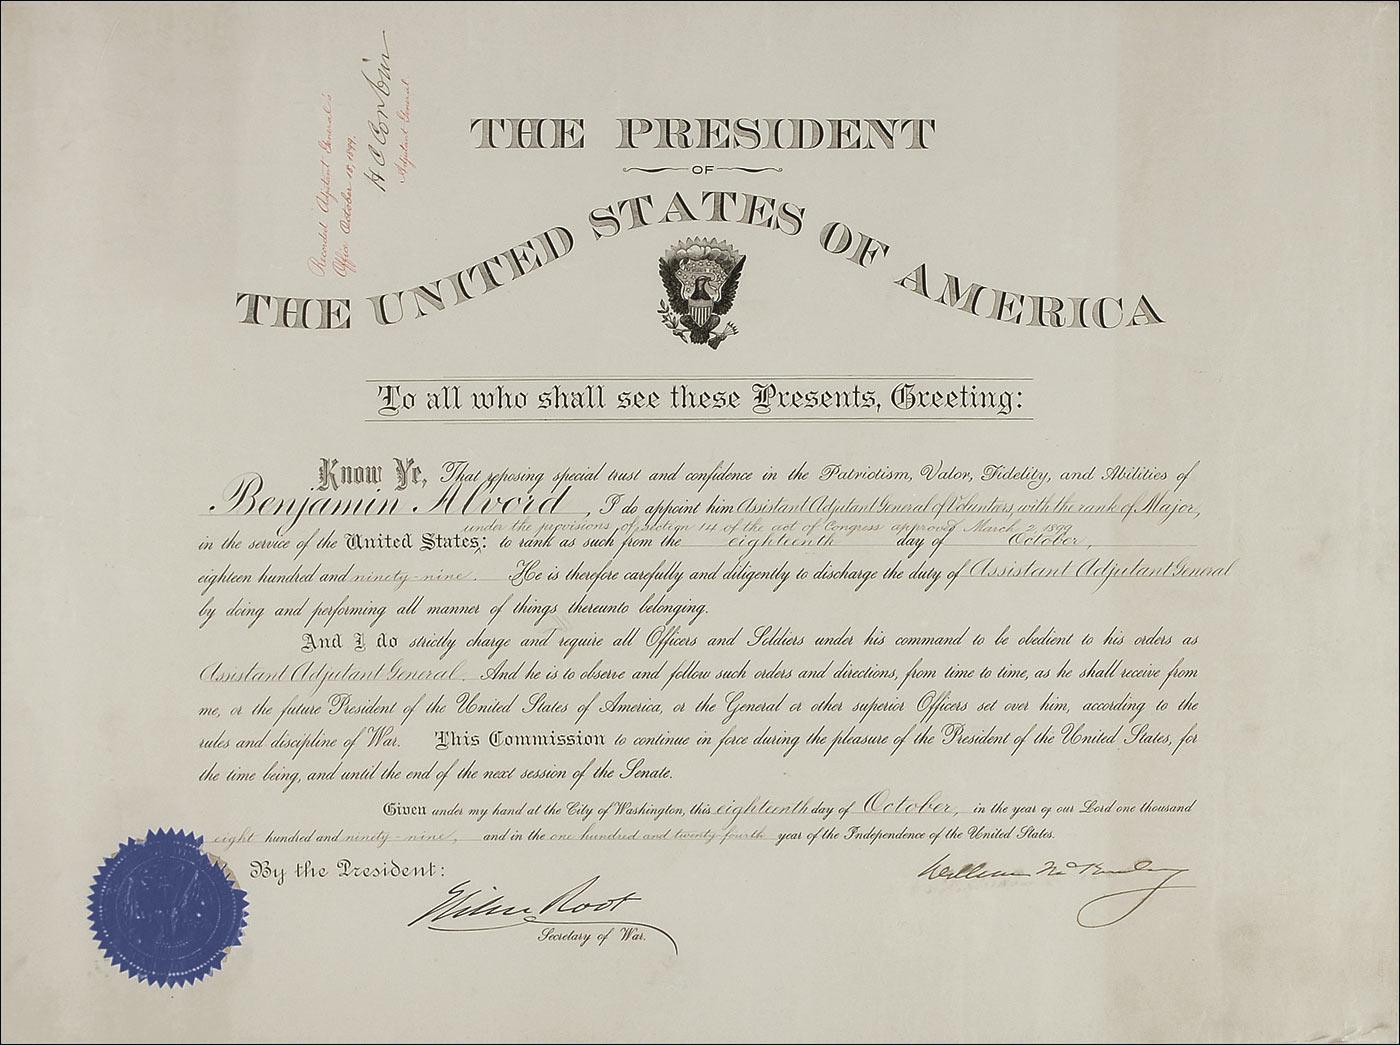 Recorded Adjutant General's
Office October 18, 1899.
H C Corbin
Adjutant General
THE PRESIDENT
OF
THE UNITED STATES OF AMERICA
To all who shall see these Presents, Greeting:
Know Ye, That reposing special trust and confidence in the Patriotism, Valor, Fidelity, and Abilities of
Benjamin Alvord, I do appoint him Assistant Adjutant General of Volunteers, with the rank of Major,
under the provisions of section 14 of the act of Congress approved March 2, 1899
in the service of the United States: to rank as such from the eighteenth day of October,
eighteen hundred and ninety-nine. He is therefore carefully and diligently to discharge the duty of Assistant Adjutant General
by doing and performing all manner of things thereunto belonging.
And I do strictly charge and require all Officers and Soldiers under his command to be obedient to his orders as
Assistant Adjutant General. And he is to observe and follow such orders and directions, from time to time, as he shall receive from
me, or the future President of the United States of America, or the General or other superior Officers set over him, according to the
rules and discipline of War. This Commission to continue in force during the pleasure of the President of the United States, for
the time being, and until the end of the next session of the Senate.
Given under my hand at the City of Washington, this eighteenth day of October, in the year of our Lord one thousand
eight hundred and ninety-nine, and in the one hundred and twenty-fourth year of the Independence of the United States.
By the President:
William McKinley
Elihu Root
Secretary of War.